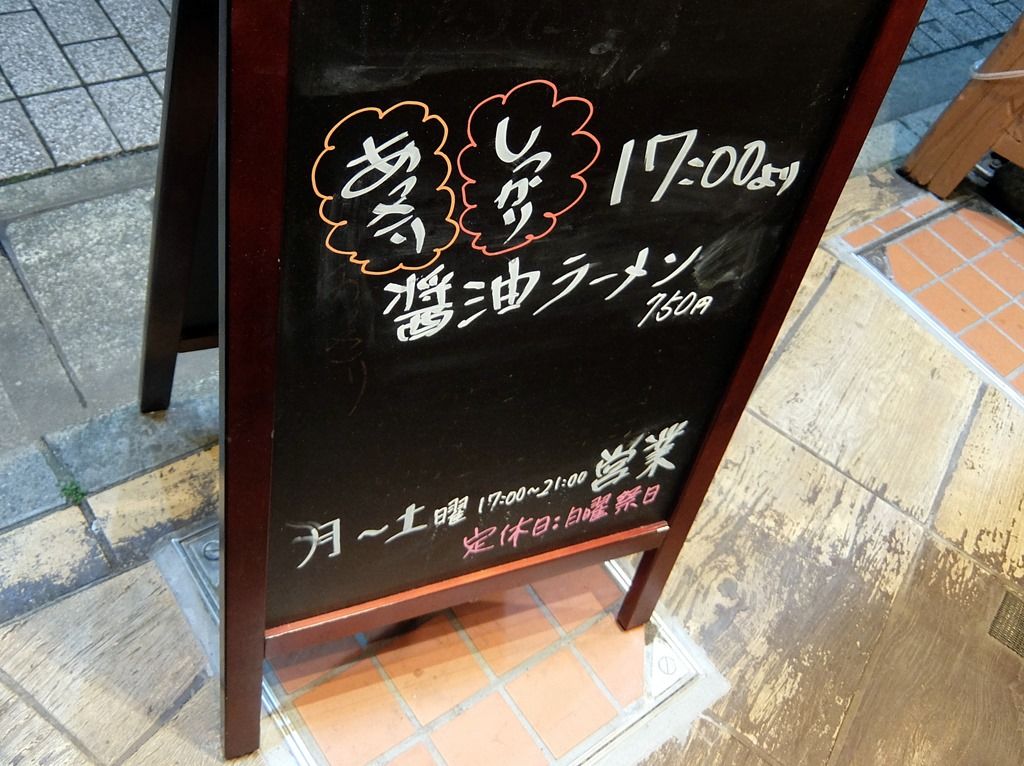 あっさり
しっかり
17:00より
醤油ラーメン
750円
月～土曜 17:00～21:00 営業
定休日:日曜祭日